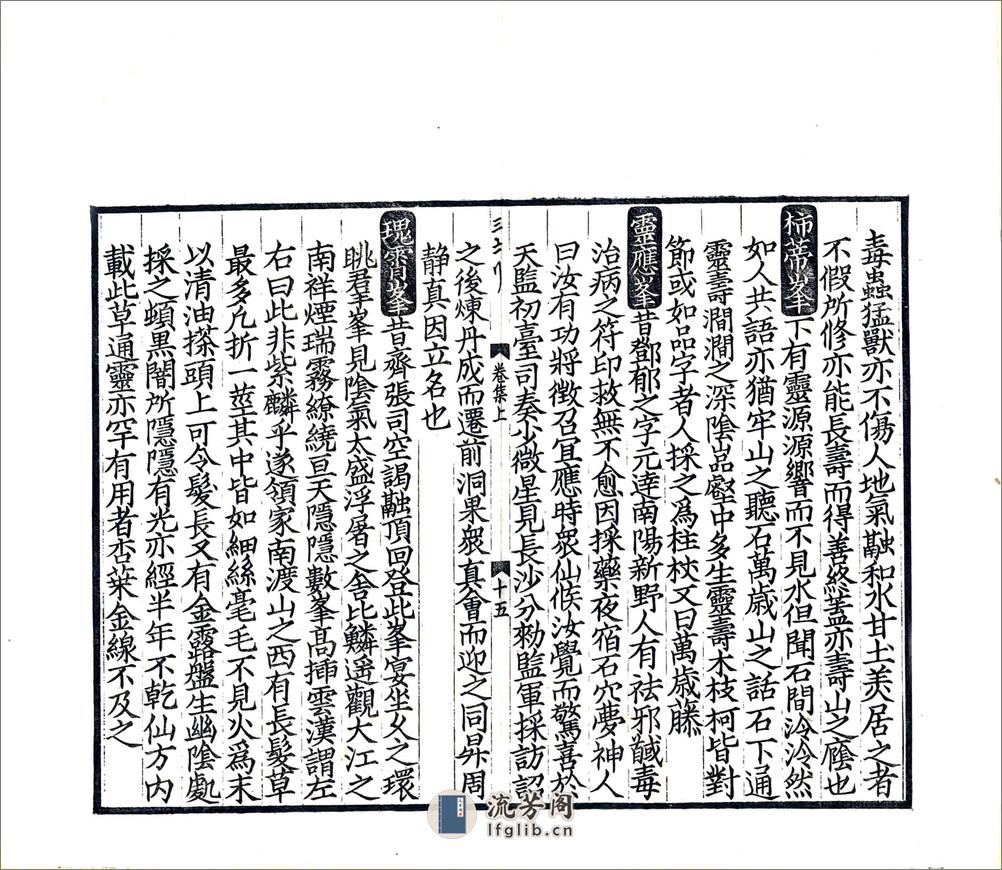 毒蟲猛獸亦不傷人地氣融和水甘土美居之者
不假所修亦能長壽而得善終盖亦壽山之廕也
柿蔕峯下有靈源源響而不見水但聞石間泠泠然
如人共語亦猶牢山之聽石萬歳山之話石下通
靈壽澗澗之深陰嵓壑中多生靈壽木枝柯皆對
節或如品字者人採之爲柱杖又曰萬歳藤
靈應峯昔鄧郁之字元達南陽新野人有祛邪馘毒
治病之符印救無不愈因採藥夜宿石穴夢神人
曰汝有功將徴召宜應時衆仙候汝覺而驚喜於
天監初臺司奏少微星見長沙分勑監軍採訪認
之後煉丹成而遷前洞果衆真會而迎之同昇周
静真因立名也
卷集上
十五
瑰霄峯昔齊張司空謁融頂回登此峯宴坐久之環
眺君峯見陰氣太盛浮屠之舎比鱗遥觀大江之
南祥煙瑞霧繚繞亘天隱隱數峯髙揷雲漢謂左
右曰此非紫麟乎遂領家南渡山之西有長髮草
最多凢折一莖其中皆如細絲毫毛不見火爲末
以清油搽頭上可令髮長又有金露盤生幽陰處
採之頓黒闇所隱隱有光亦經半年不乾仙方内
載此草通靈亦罕有用者杏葉金線不及之
流芳阁
lfglib.cn